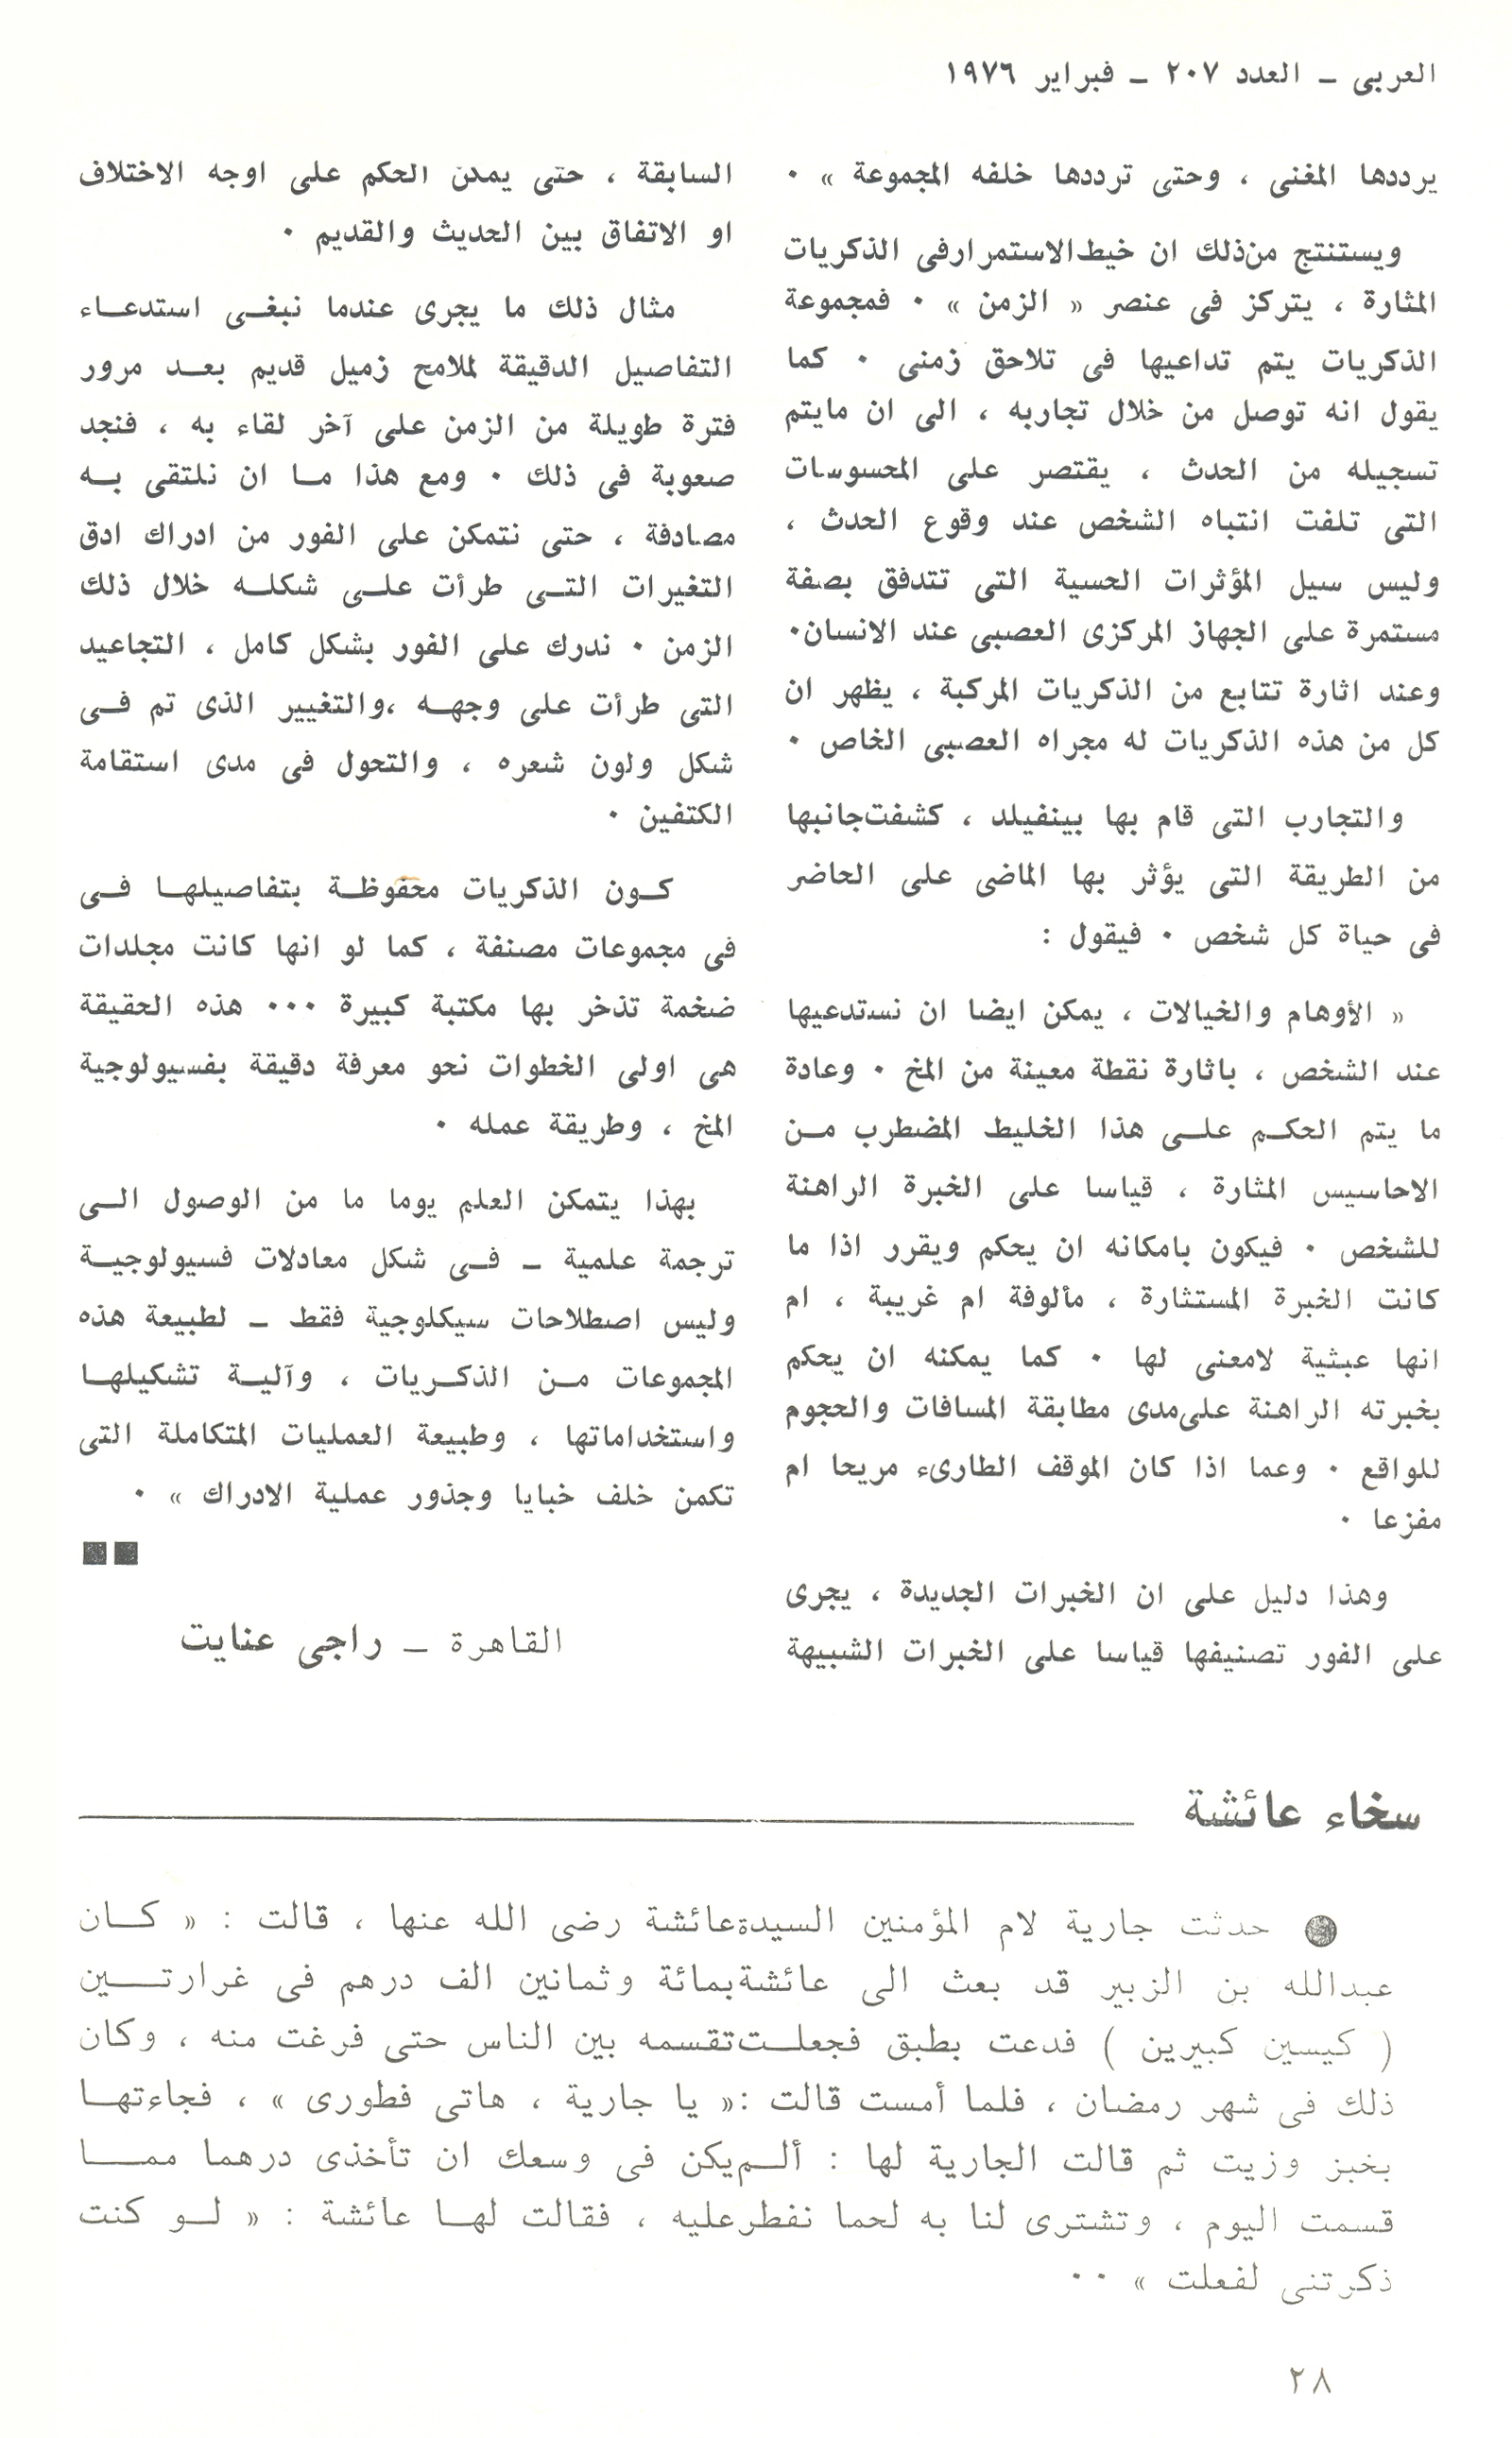 العربى ـ العدد ٢٠٧ ـ فبراير ١٩٧٦
يرددها المغنى ، وحتى ترددها خلفه المجموعة » ٠
ويستنتج من ذلك ان خيط الاستمرار فى الذكريات
المثارة ، يتركز فى عنصر « الزمن » ٠ فمجموعة
الذكريات يتم تداعيها فى تلاحق زمنى ٠ كما
يقول انه توصل من خلال تجاربه ، الى ان مايتم
تسجيله من الحدث ، يقتصر على المحسوسات
التى تلفت انتباه الشخص عند وقوع الحدث ،
وليس سيل المؤثرات الحسية التى تتدفق بصفة
مستمرة على الجهاز المركزى العصبى عند الانسان٠
وعند اثارة تتابع من الذكريات المركبة ، يظهر ان
كل من هذه الذكريات له مجراه العصبى الخاص ٠
والتجارب التى قام بها بينفيلد ، كشفت جانبها
من الطريقة التى يؤثر بها الماضى على الحاضر
فى حياة كل شخص ٠ فيقول :
« الأوهام والخيالات ، يمكن ايضا ان نستدعيها
عند الشخص ، باثارة نقطة معينة من المخ ٠ وعادة
ما يتم الحكـم علـى هذا الخليط المضطرب مـن
الاحاسيس المثارة ، قياسا على الخبرة الراهنة
للشخص ٠ فيكون بامكانه ان يحكم ويقرر اذا ما
كانت الخبرة المستثارة ، مألوفة ام غريبة ، ام
انها عبثية لامعنى لها ٠ كما يمكنه ان يحكم
بخبرته الراهنة على مدى مطابقة المسافات والحجوم
للواقع ٠ وعما اذا كان الموقف الطارىء مريحا ام
مفزعا ٠
وهذا دليل على ان الخبرات الجديدة ، يجرى
على الفور تصنيفها قياسا على الخبرات الشبيهة
السابقة ، حتى يمكن الحكم على اوجه الاختلاف
او الاتفاق بين الحديث والقديم ٠
مثال ذلك ما يجرى عندما نبغـى استدعـاء
التفاصيل الدقيقة لملامح زميل قديم بعـد مرور
فترة طويلة من الزمن على آخر لقاء به ، فنجد
صعوبة فى ذلك ٠ ومع هذا مـا ان نلتقى بـه
مصادفة ، حتى نتمكن على الفور من ادراك ادق
التغيرات التـى طرأت علـى شكلـه خلال ذلك
الزمن ٠ ندرك على الفور بشكل كامل ، التجاعيد
التى طرأت على وجهـه ،والتغيير الذى تم فـى
شكل ولون شعره ، والتحول فى مدى استقامة
الكتفين ٠
كـون الذكريات محفوظـة بتفاصيلهـا فـى
فى مجموعات مصنفة ، كما لو انها كانت مجلدات
ضخمة تذخر بها مكتبة كبيرة ٠٠٠ هذه الحقيقة
هى اولى الخطوات نحو معرفة دقيقة بفسيولوجية
المخ ، وطريقة عمله ٠
بهذا يتمكن العلم يوما ما من الوصول الـى
ترجمة علمية ـ فـى شكل معادلات فسيولوجيـة
وليس اصطلاحات سيكلوجية فقط ـ لطبيعة هذه
المجموعات مـن الذكـريات ، وآليـة تشكيلهـا
واستخداماتها ، وطبيعة العمليات المتكاملة التى
تكمن خلف خبايا وجذور عملية الادراك » ٠
القاهرة ـ راجى عنايت
سخاء عائشة
حدثت جارية لام المؤمنين السيدة عائشة رضى الله عنها ، قالت : « كـان
عبدالله بن الزبير قد بعث الى عائشة بمائة وثمانين الف درهم فى غرارتـين
( كيسين كبيرين ) فدعت بطبق فجعلـت تقسمه بين الناس حتى فرغت منه ، وكان
ذلك فى شهر رمضان ، فلما أمست قالت :« يا جارية ، هاتى فطورى » ، فجاءتهـا
بخبز وزيت ثم قالت الجارية لها : ألـم يكن فى وسعك ان تأخذى درهما ممـا
قسمت اليوم ، وتشترى لنا به لحما نفطر عليه ، فقالت لهـا عائشة : « لـو كنت
ذكرتنى لفعلت » ٠٠
٢٨